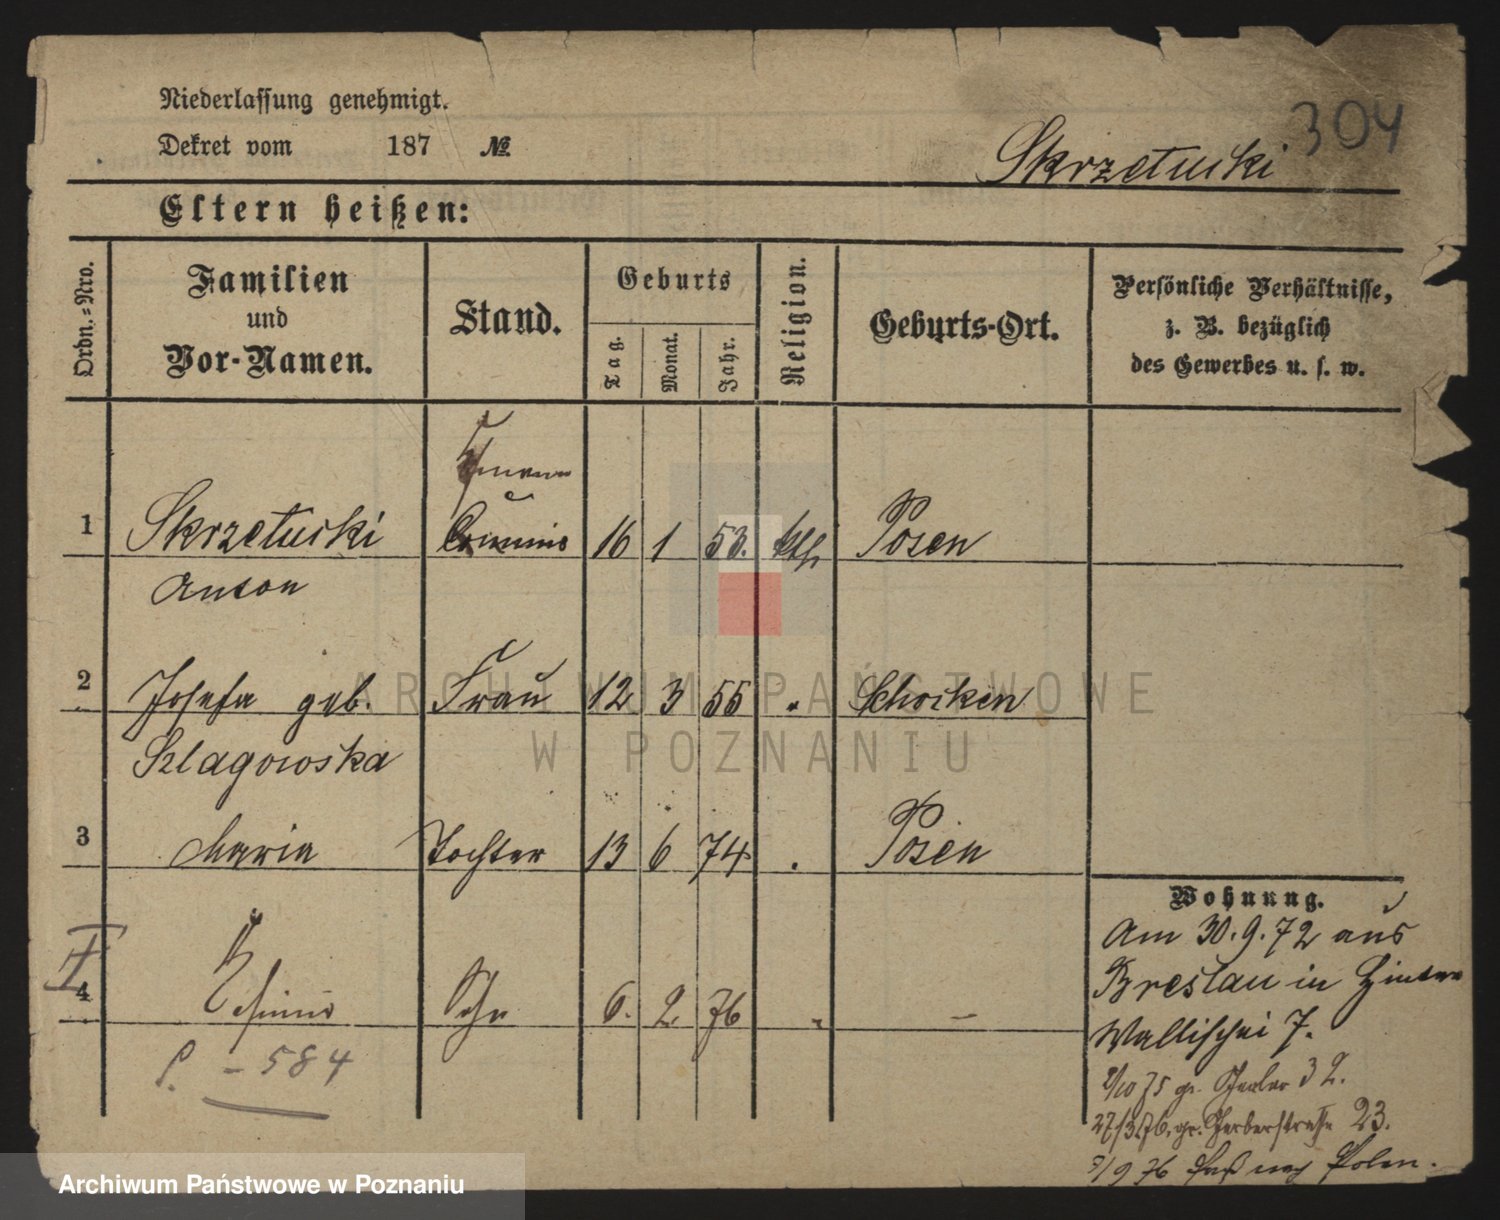 304
Niederlassung genehmigt.
Dekret vom 187 №
Skrzetuski
Eltern heißen:
Ordn.=Nro.
Familien
und
Vor-Namen.
Stand.
Geburts
Tag.
Monat.
Jahr.
Religion.
Geburts-Ort.
Persönliche Verhältnisse,
z. B. bezüglich
des Gewerbes u. s. w.
1 Skrzetuski 16 1 53. kth Posen
Anton
2 Josefa geb. Frau 12 3 55 " Schocken
Szlagowska
3 Maria Tochter 13 6 74 " Posen
Wohnung.
Am 30.9.72 aus
Breslau in Hinter
Wallischei 7.
I
4 Sohn 6. 2 76 " —
P. - 584
2/10 75 gr. 32.
27/3.76. gr. Gerberstraße 23.
5/9 76 Paß nach Polen.
ARCHIWUM PAŃSTWOWE
W POZNANIU
Archiwum Państwowe w Poznaniu